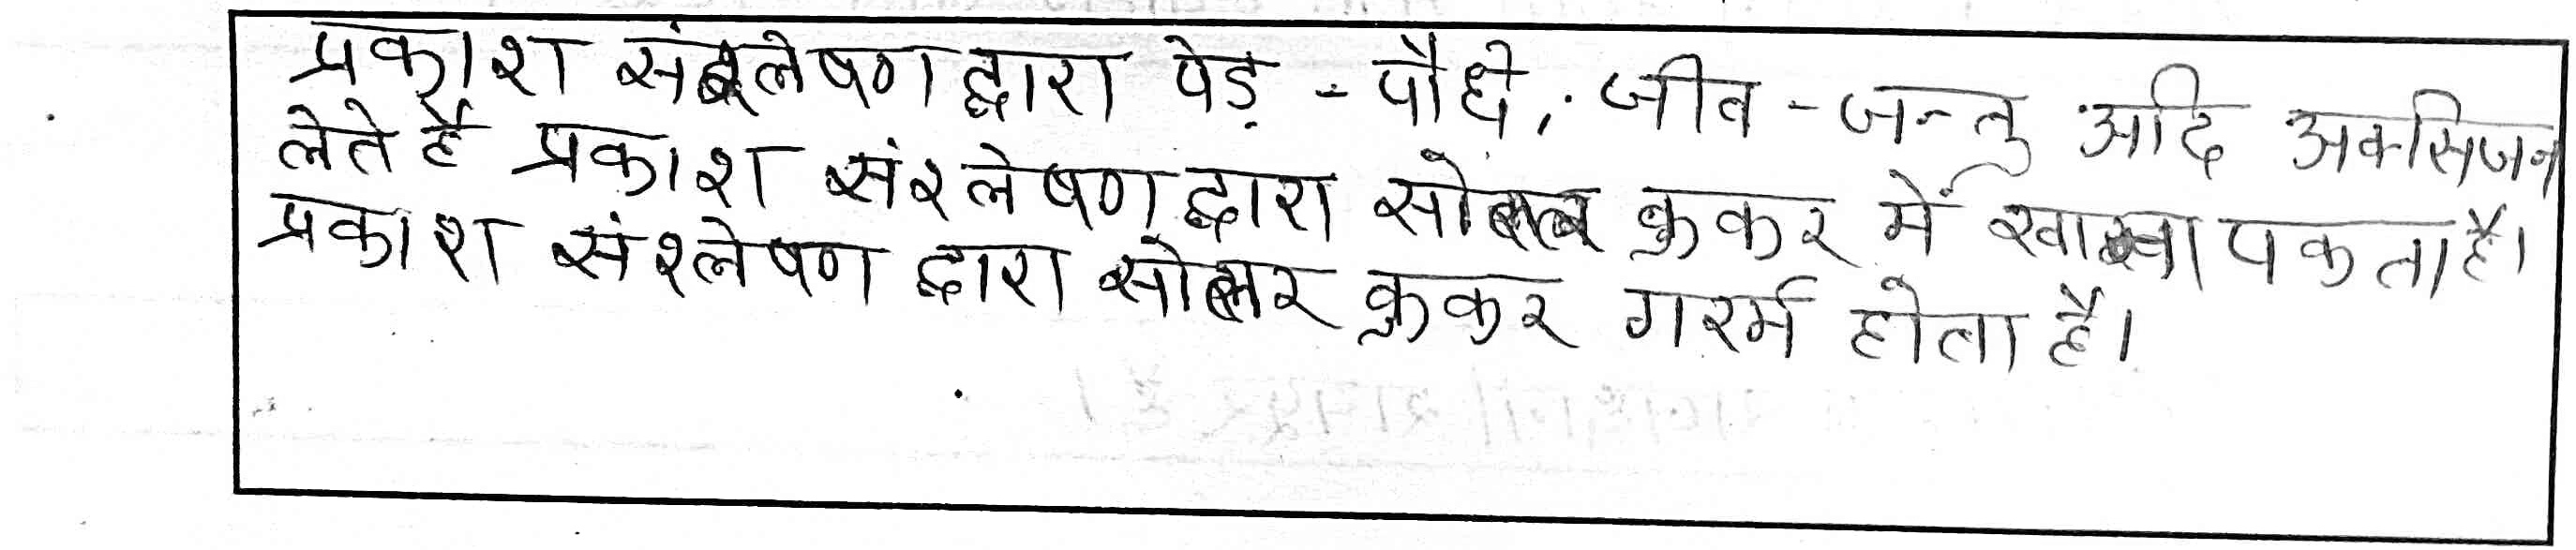 प्रकाश संश्लेषण द्वारा पेड़ - पौधे, जीव - जन्तु आदि अकसिजन
लेते हैं प्रकाश संश्लेषण द्वारा सोलर कुकर में खाना पकता है।
प्रकाश संश्लेषण द्वारा सोलर कुकर गरम होता है।